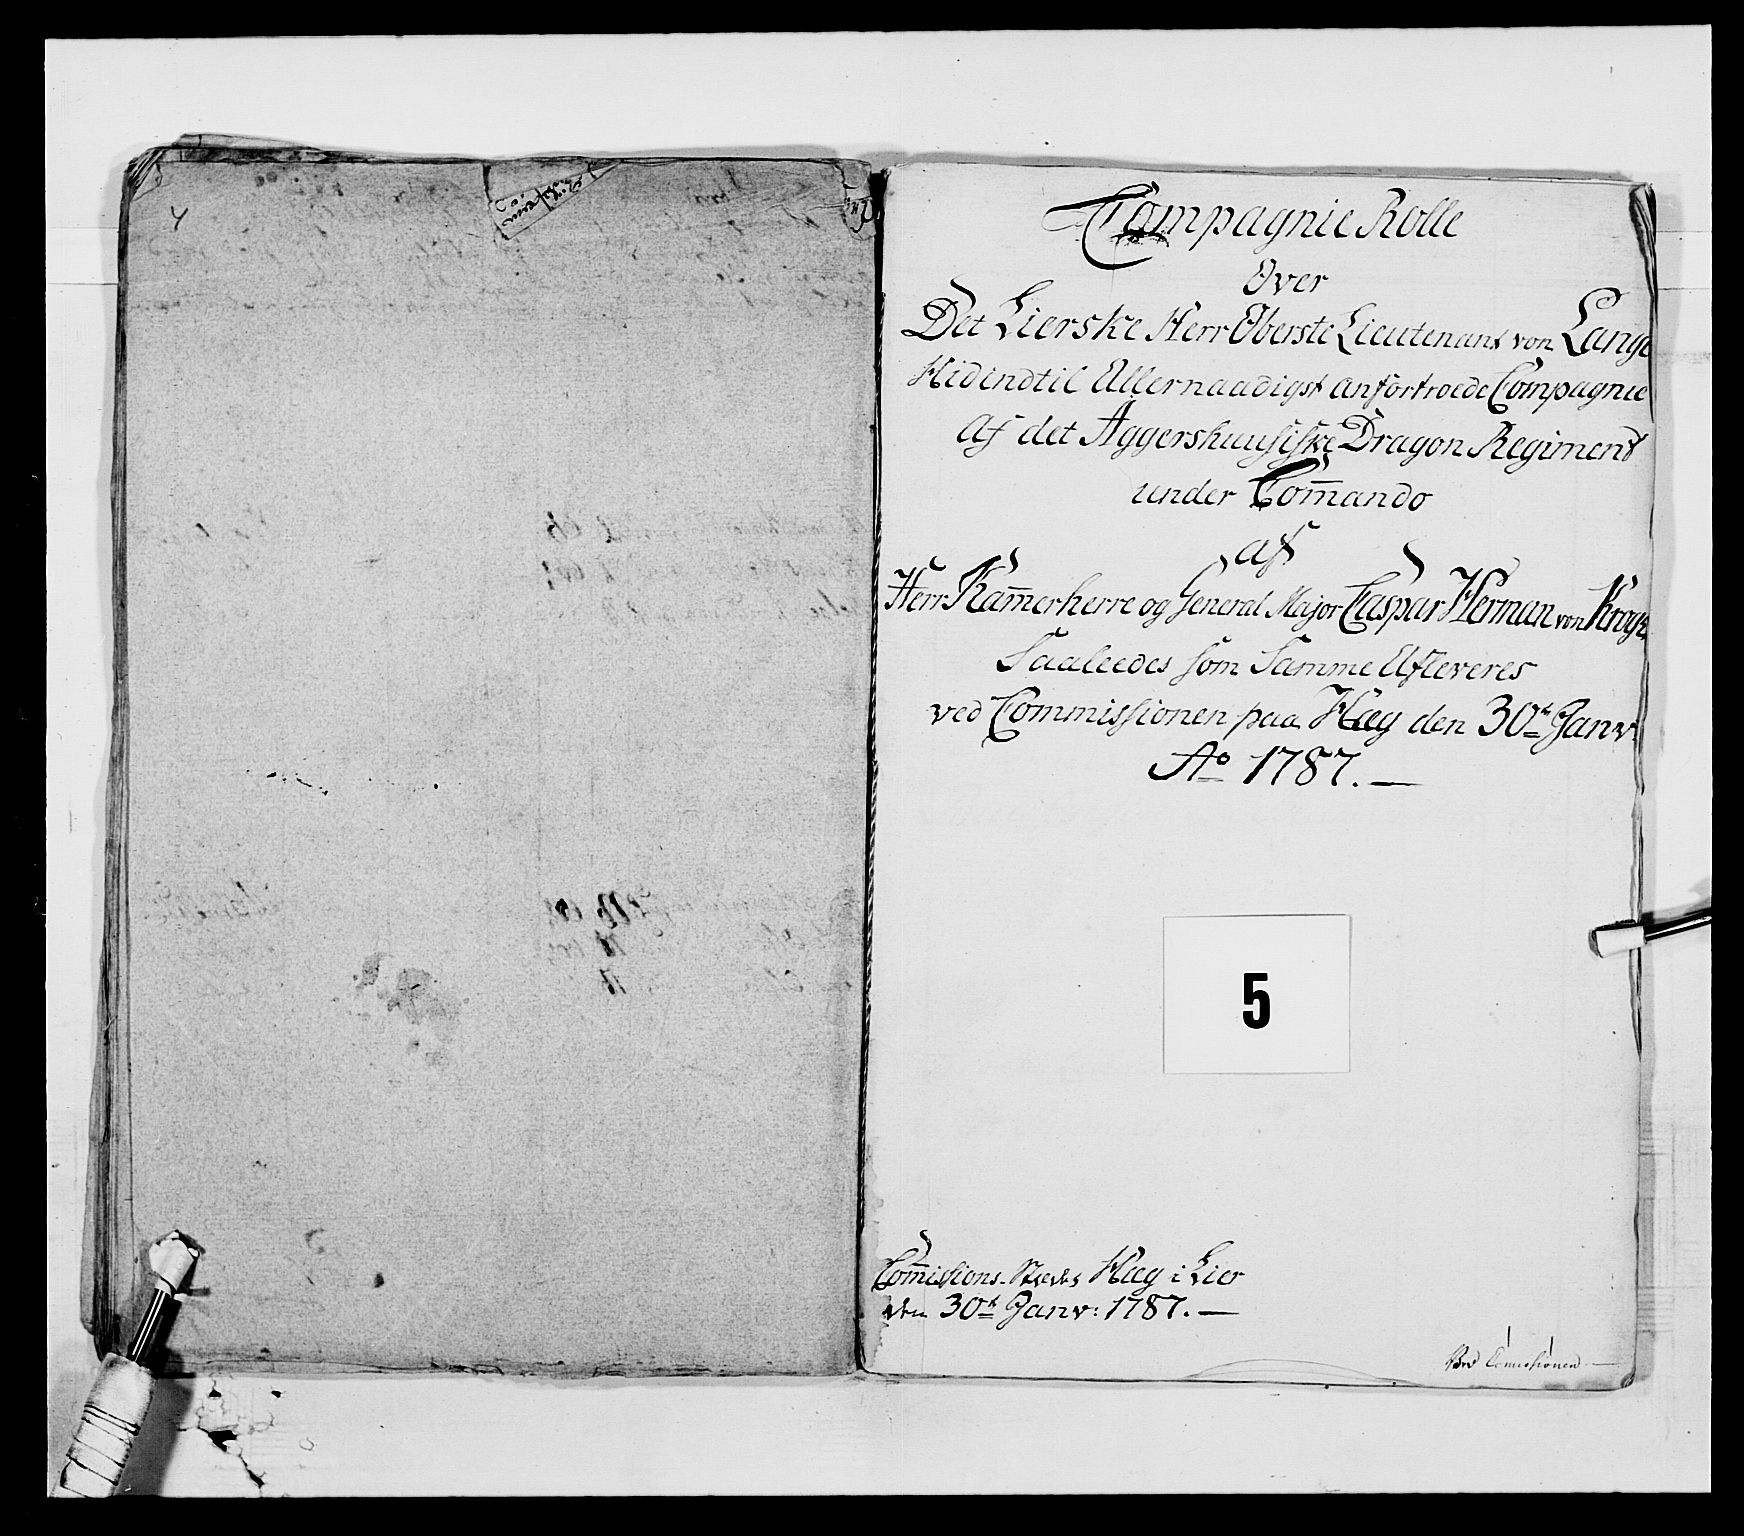 4
Compagnie Rolle
Over
Det Lierske Herr Oberste Lieutenant von Lange
Hidindtil Allernaadigst anfortroede Compagnie
Af det Aggershuusiske Dragon Regiment
under Com̄ando
af
Herr Kam̄erherre og General Major Caspar Herman von Krogh
Saaleedes som Samme Afleveres
ved Commissionen paa Hæg den 30te Janv:
Ao 1787. —
5
Com̄issions-Stædet Hæg i Lier
den 30te Janv: 1787. —
Ved Commissionen —